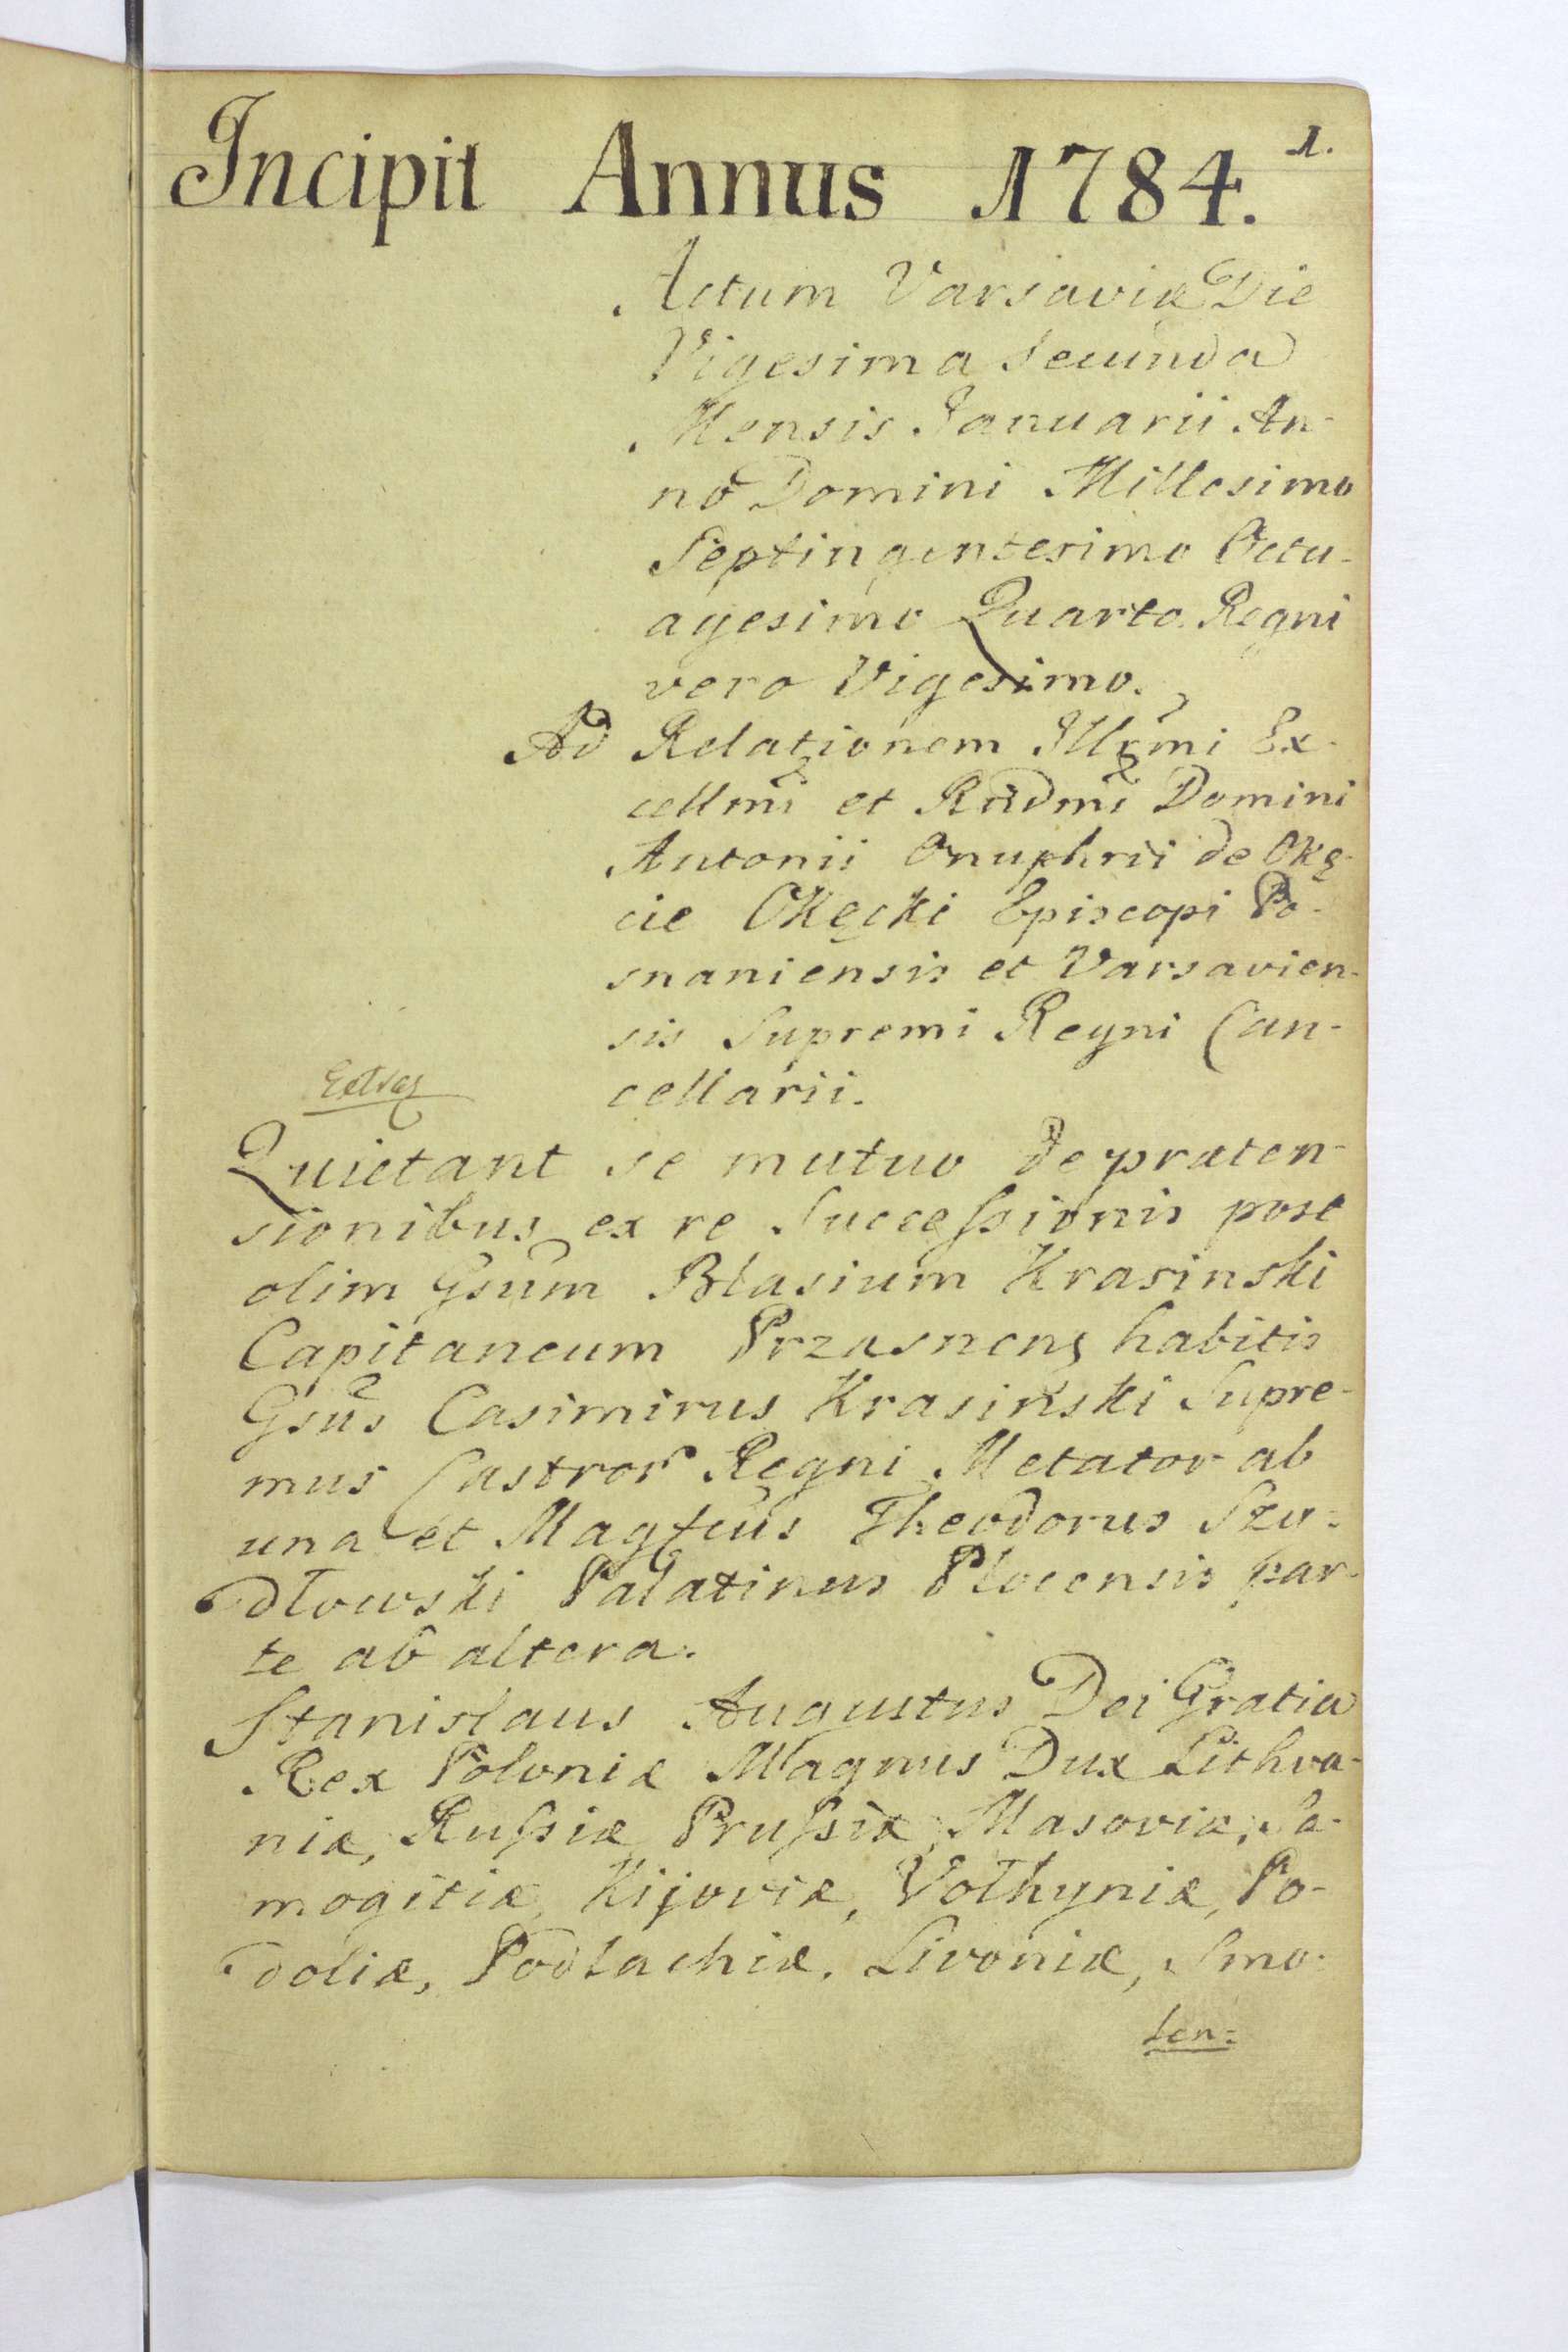 1.
Incipit Annus 1784.
Actum Varsaviæ Die
Vigesima Secunda
Mensis Januarii An-
no Domini Millesimo
Septingentesimo Octu-
agesimo Quarto Regni
vero Vigesimo.
Ad Relationem Illr̃mi Ex-
cellm̃i et Rñdm̃i Domini
Antonii Onuphrii de Okę-
cie Okęcki Episcopi Po-
snaniensis et Varsavien-
sis Supremi Regni Can-
cellarii.
Quietant se mutuo de præten-
sionibus ex re Successionis post
olim Gsũm Blasium Krasinski
Capitaneum Przasnens habitis
Gsũs Casimirus Krasinski Supre-
mus Castror Regni Metator ab
una et Magfcũs Theodorus Szy-
dłowski Palatinus Plocensis par-
te ab altera.
Stanislaus Augustus Dei Gratia
Rex Poloniæ Magnus Dux Lithva-
niæ, Russiæ Prussiæ, Masoviæ, Sa-
mogitiæ, Kijoviæ, Volhyniæ, Po-
doliæ, Podlachiæ, Livoniæ, Smo-
len=